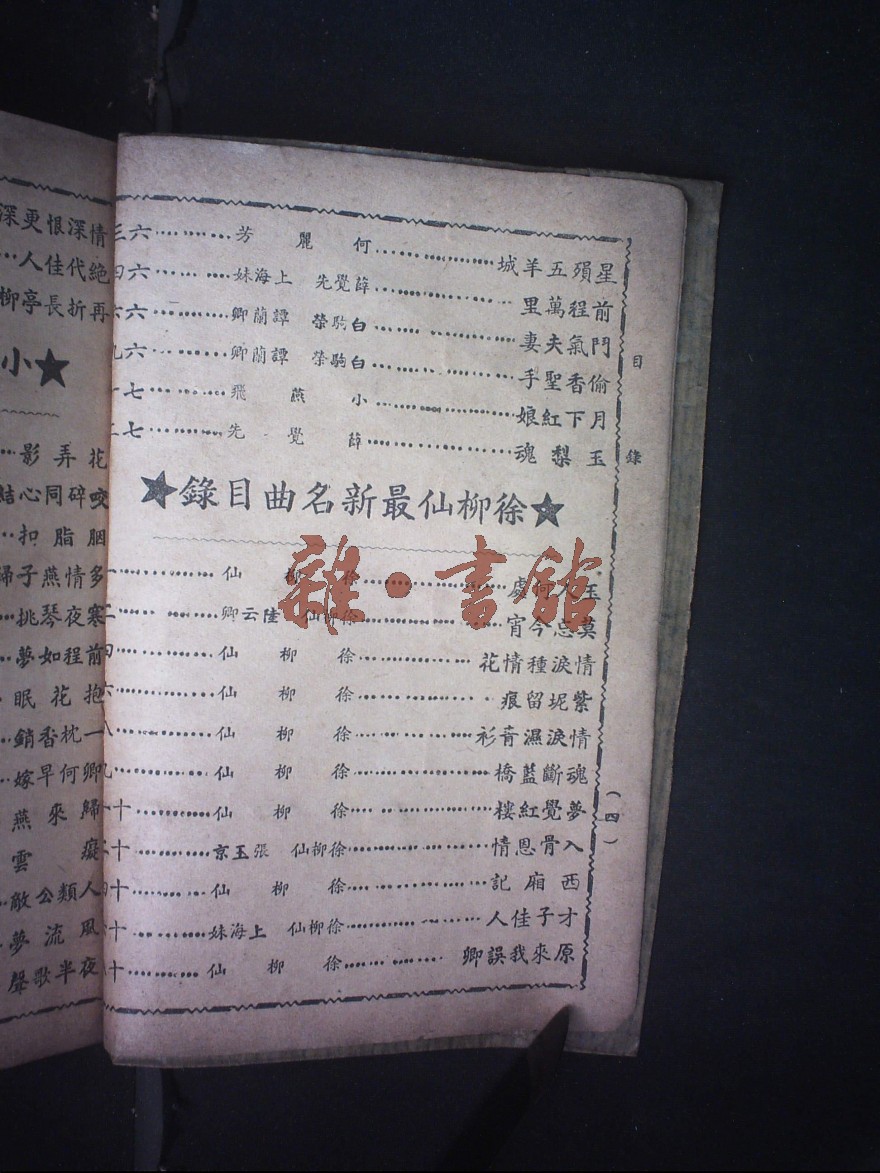 目錄
星殞五羊城……何麗芳……六三
前程萬里……薛覺先 上海妹……六四
鬥氣夫妻……白駒榮 譚蘭卿……六六
偷香聖手……白駒榮 譚蘭卿……六九
月下紅娘……小燕飛……七一
玉梨魂……薛覺先……七二
★徐柳仙最新名曲目錄★
玉人何處……徐柳仙……一
莫忘今宵……徐柳仙 陸云卿……二
情淚種情花……徐柳仙……四
紫坭留痕……徐柳仙……六
情淚濕青衫……徐柳仙……八
魂斷藍橋……徐柳仙……九
夢覺紅樓……徐柳仙……十一
入骨恩情……徐柳仙 張玉京……十
西廂記……徐柳仙……十四
才子佳人……徐柳仙 上海妹……十六
原來我誤卿……徐柳仙……十八
(四)
情深恨更深
絕代佳人…
再折長亭柳
★小
花弄影…
咬碎同心結
胭脂扣…
多情燕子歸
寒夜琴挑…
前程如夢…
抱花眠
一枕香銷…
卿何早嫁…
歸來燕
癡雲
人類公敵
風流夢
夜半歌聲
雜·書館